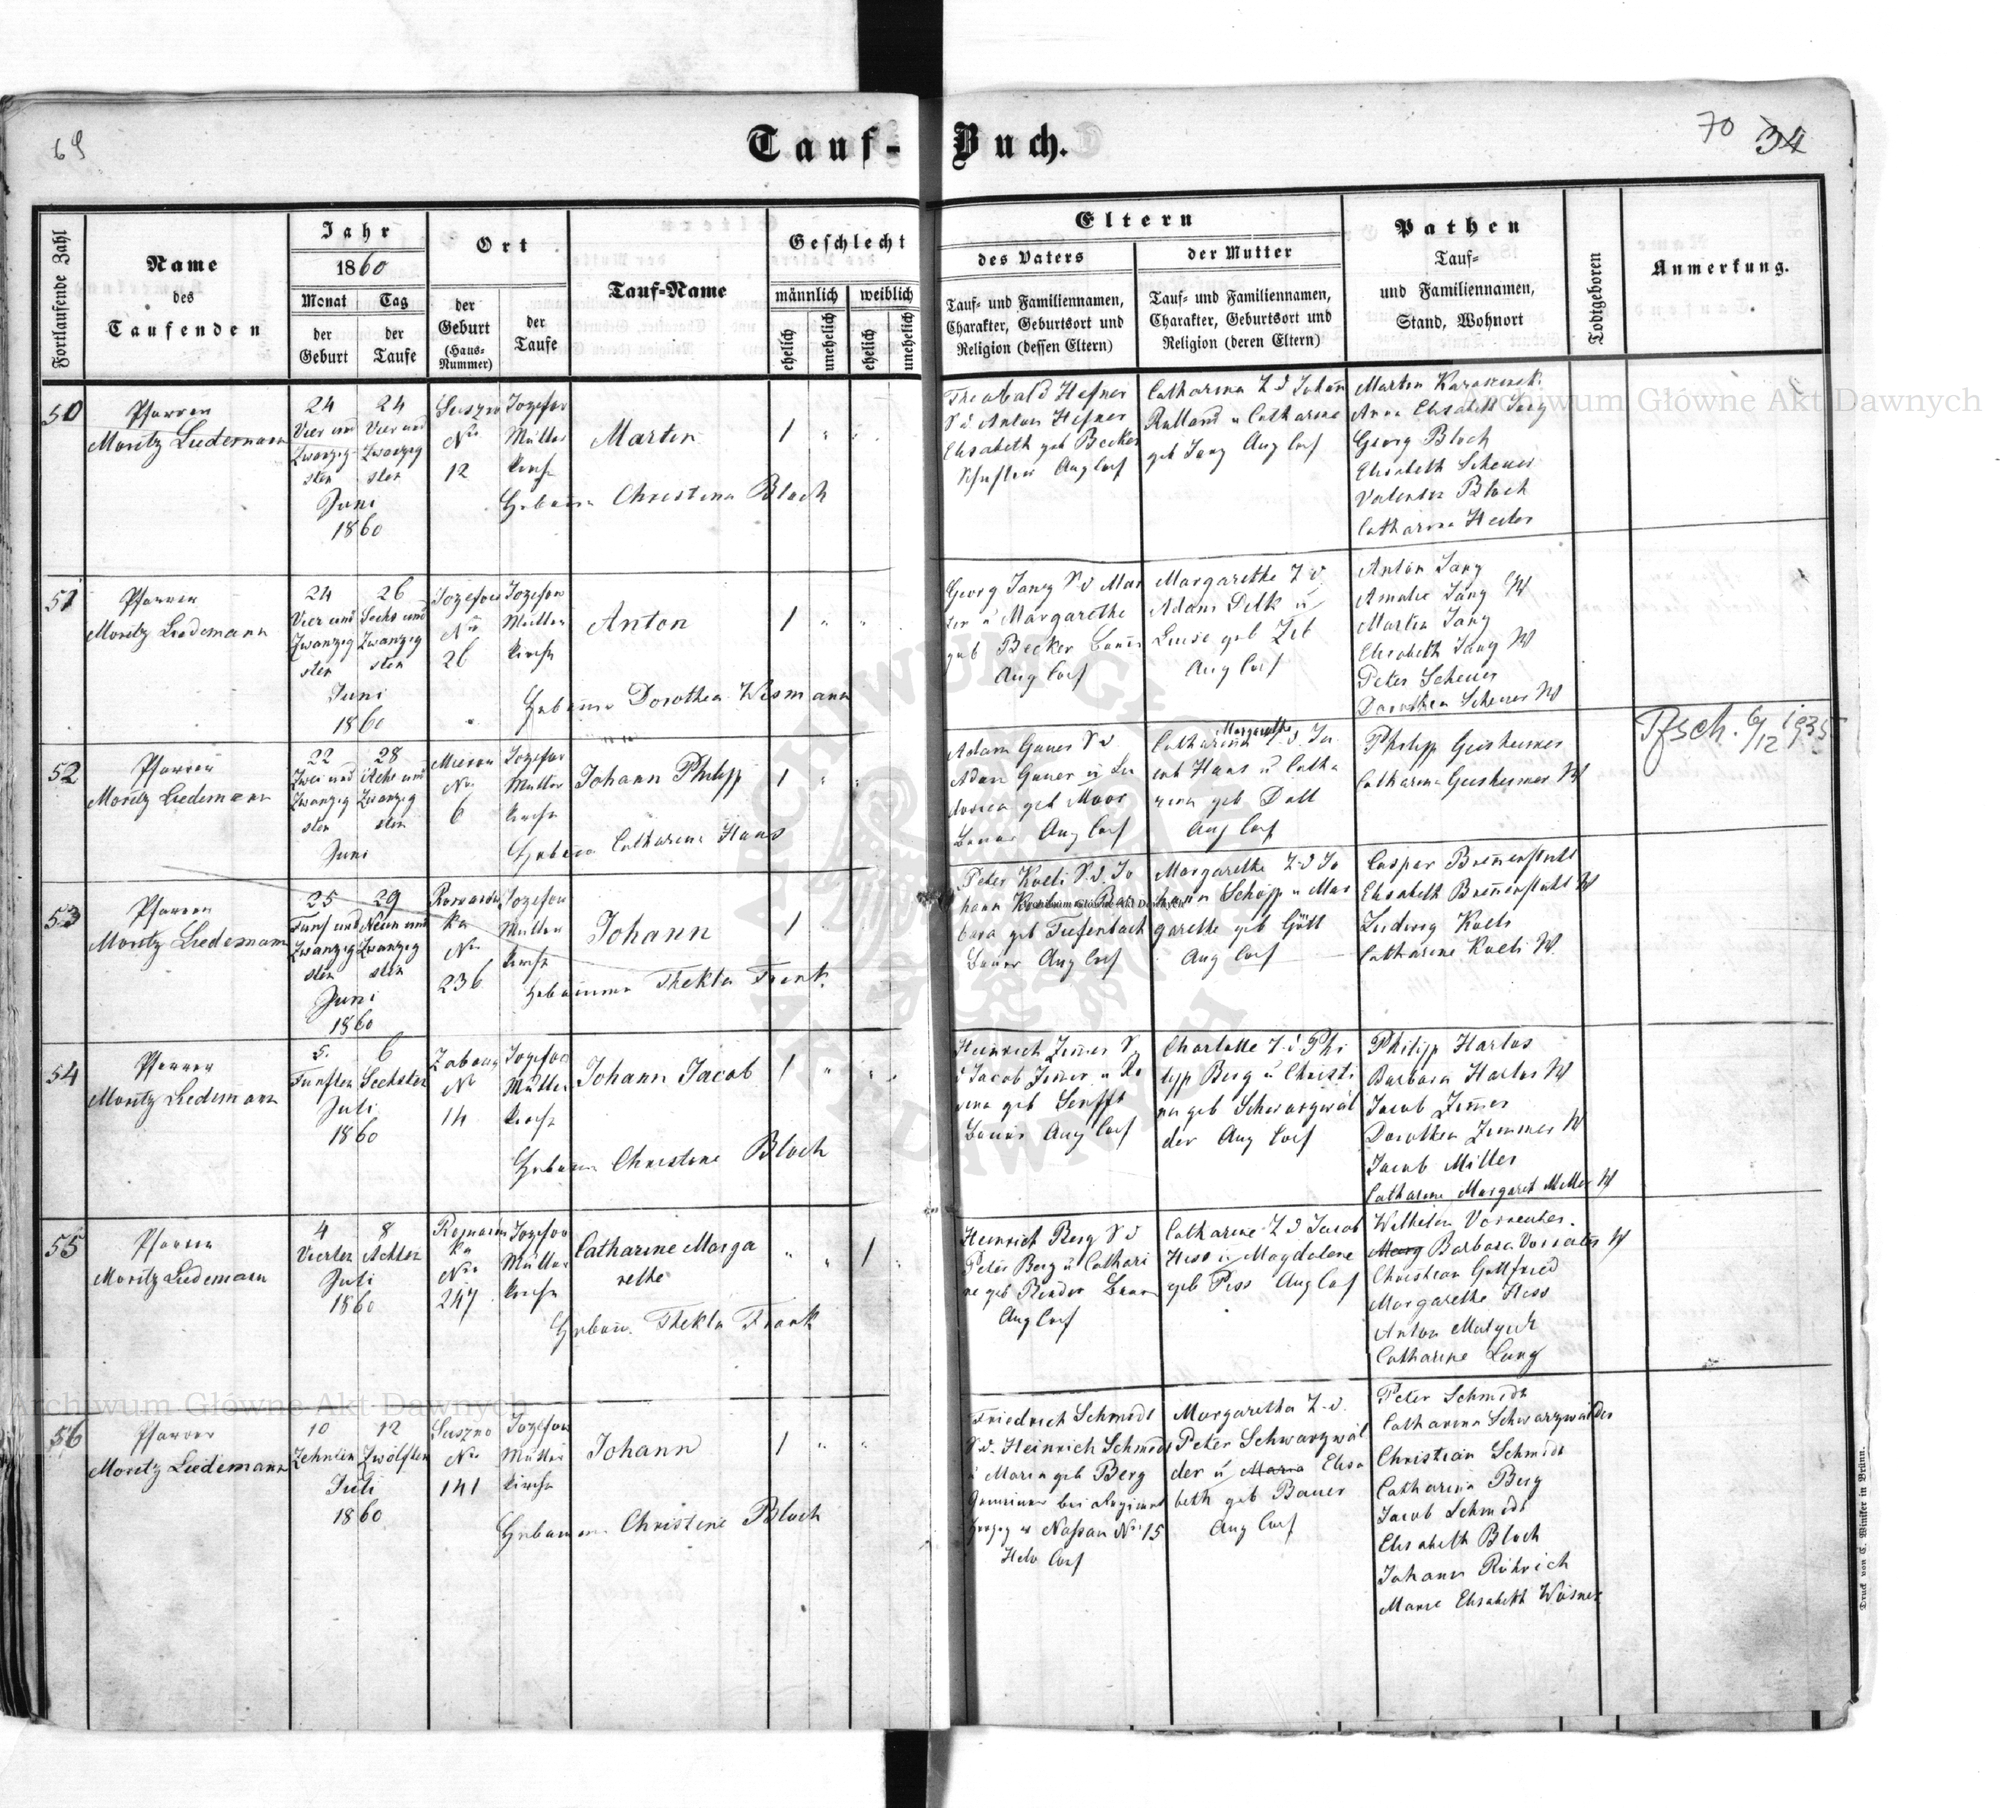 69
Tauf-Buch.
70 34
Fortlaufende Zahl
Name
des
Taufenden
Jahr
1860
Monat Tag
der der
Geburt Taufe
Ort
der
Geburt
(Haus-
Nummer)
der
Taufe
Tauf-Name
Geschlecht
männlich weiblich
ehelich unehelich ehelich unehelich
Eltern
des Vaters
Tauf- und Familiennamen,
Charakter, Geburtsort und
Religion (dessen Eltern)
der Mutter
Tauf- und Familiennamen,
Charakter, Geburtsort und
Religion (deren Eltern)
Pathen
Tauf-
und Familiennamen,
Stand, Wohnort
Todtgeboren
Anmerkung.
50
Pfarrer
Moritz Liedemann
24 24
Vier und Vier und
Zwanzig Zwanzig
sten sten
Juni
1860
Suszno
No
12
Jozefow
Mutter
kirche
Martin
1
Hebame Christina Bloch
Theobald Hefner
S d Anton Hefner
Elisabeth geb Becker
Aug Conf
Catharina T d Johan
Rulland u Catharine
geb Jang Aug Conf
Martin
Anna Elisabeth Jang
Georg Bloch
Elisabeth Scheuer
Valentin Bloch
Catharina
51
Pfarrer
Moritz Liedemann
24 26
Vier und Sechs und
Zwanzig Zwanzig
sten sten
Juni
1860
Jozefow
No
26
Jozefow
Mutter
kirche
Anton
1
Hebame Dorothea Wismann
Georg Jang S d Mar
u Margarethe
geb Becker Bauer
Aug Conf
Margarethe T d
Adam u
Luise geb
Aug Conf
Anton Jang
Amalie Jang W
Martin Jang
Elisabeth Jang W
Peter Scheuer
Dorothea Scheuer W
52
Pfarrer
Moritz Liedemann
22 28
Zwei und Acht und
Zwanzig Zwanzig
sten sten
Juni
Mierow
No
6
Jozefow
Mutter
kirche
Johann Philipp
1
Hebame Catharina Haas
Adam Gauer S d
Adam Gauer u
geb Moor
Bauer Aug Conf
Margarethe
Catharina T d Ja
cob Haas u Catha
rina geb Doll
Aug Conf
Philipp Geisheimer
Catharina Geisheimer W
Pfsch. 6/12 1935
53
Pfarrer
Moritz Liedemann
25 29
Fünf und Neun und
Zwanzig Zwanzig
sten sten
Juni
1860
No
236
Jozefow
Mutter
kirche
Johann
1
Hebamme Thekla Frank
Peter S. d. Jo
hann
bara geb Tiefenbach
Bauer Aug Conf
Margarethe T d Jo
hann Schopp u Mar
garethe geb Göll
Aug Conf
Caspar Brennenstuhl
Elisabeth Brennenstuhl W
Ludwig
Catharine W
54
Pfarrer
Moritz Liedemann
5. 6
Fünften Sechsten
Juli
1860
No
14
Jozefow
Mutter
kirche
Johann Jacob
1
Hebame Christine Bloch
Heinrich Zimer S
d Jacob Zimer u
geb Senfft
Bauer Aug Conf
Charlotte T d Phi
lipp Berg u Christi
na geb Schwarzwäl
der Aug Conf
Philipp Harlos
Barbara Harlos W
Jacob Zimer
Dorothea Zimmer W
Jacob Miller
Catharine Margaret Miller W
55
Pfarrer
Moritz Liedemann
4 8
Vierten Achten
Juli
1860
No
247
Jozefow
Mutter
kirche
Catharine Marga
rethe
1
Heban. Thekla Frank
Heinrich Berg S d
Peter Berg u Cathari
ne geb Render Bauer
Aug Conf
Catharine T d Jacob
Hess u Magdalene
geb Pess Aug Conf
Wilhelm
Barbara W
Christian Gottfried
Margarethe Hess
Anton
Catharine Lang
56
Pfarrer
Moritz Liedemann
10 12
Zehnten Zwölften
Juli
1860
Suszno
No
141
Jozefow
Mutter
kirche
Johann
1
Hebamme Christine Bloch
Friedrich Schmidt
S d. Heinrich Schmidt
u Maria geb Berg
Gemeiner bei
Herzog v Nassau No 15
Helv Conf
Margaretha T d.
Peter Schwarzwäl
der u Maria Elisa
beth geb Bauer
Aug Conf
Peter Schmidt
Catharina Schwarzwälder
Christian Schmidt
Catharina Berg
Jacob Schmidt
Elisabeth Bloch
Johann Röhrich
Marie Elisabeth
Druck von C. Winiker in Brünn.
Archiwum Główne Akt Dawnych
Archiwum Główne Akt Dawnych
Archiwum Główne Akt Dawnych
ARCHIWUM GŁÓWNE AKT DAWNYCH